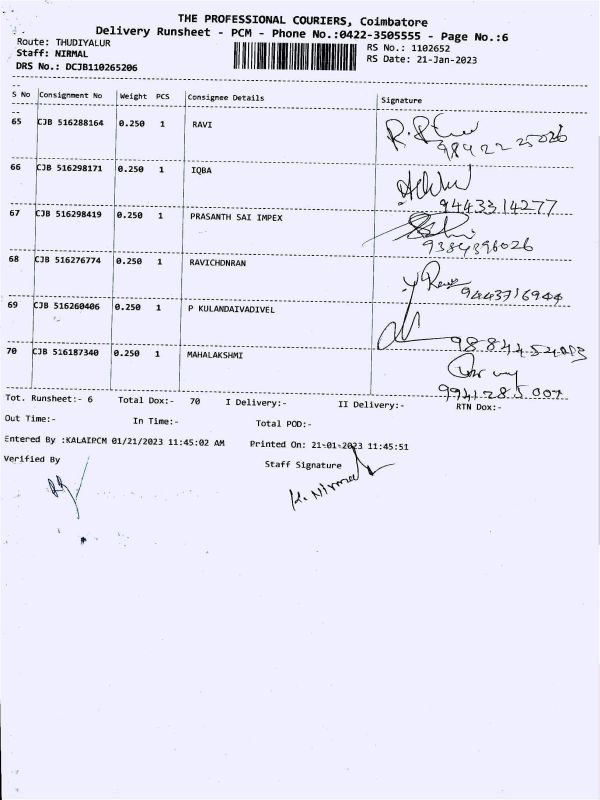 THE PROFESSIONAL COURIERS, Coimbatore
Delivery Runsheet - PCM - Phone No.:0422-3505555 - Page No.:6
Route: THUDIYALUR
Staff: NIRMAL
RS No.: 1102652
DRS No.: DCJB110265206
RS Date: 21-Jan-2023
S No Consignment No Weight PCS Consignee Details Signature
65 CJB 516288164 0.250 1 RAVI
66 CJB 516298171 0.250 1 IQBA
9443314277
67 CJB 516298419 0.250 1 PRASANTH SAI IMPEX
9384396026
68 CJB 516276774 0.250 1 RAVICHDNRAN
9443716944
69 CJB 516260406 0.250 1 P KULANDAIVADIVEL
70 CJB 516187340 0.250 1 MAHALAKSHMI
Tot. Runsheet:- 6 Total Dox:- 70 I Delivery:- II Delivery:- RTN Dox:-
Out Time:- In Time:- Total POD:-
Entered By :KALAIPCM 01/21/2023 11:45:02 AM Printed On: 21-01-2023 11:45:51
Verified By Staff Signature
K. Nirmal